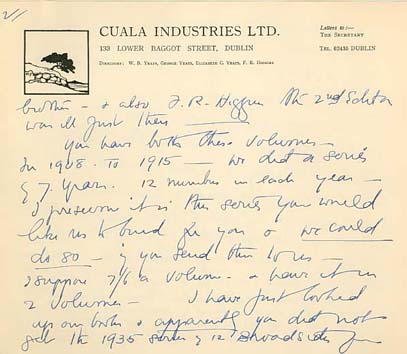 2//
CUALA INDUSTRIES LTD.
133 LOWER BAGGOT STREET, DUBLIN
DIRECTORS: W. B. YEATS, GEORGE YEATS, ELIZABETH C. YEATS, F. R. HIGGINS
Letters to :—
THE SECRETARY
TEL. 62435 DUBLIN
brother — & also F. R. Higgins the 2nd Editor
was ill just then
you have both these volumes —
In 1908 to 1915 — we did a series
of 7 years. 12 numbers in each year —
I presume it is this series you would
like us to bind for you & we could
do so — if you send them to us —
I suppose 7/6 a volume — & have it in
2 volumes — I have just looked
up our books & apparently you did not
get the 1935 series of 12 Broadsides